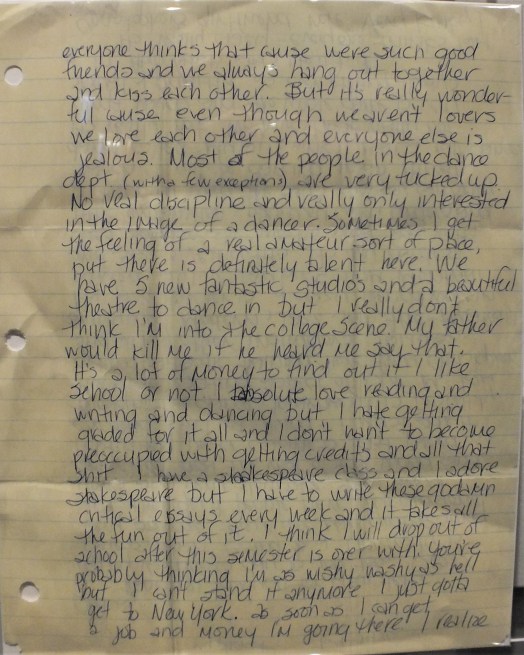 everyone thinks that cause were such good
friends and we always hang out together
and kiss each other. But it's really wonder-
ful cause even though we arent lovers
we love each other and everyone else is
jealous. Most of the people in the dance
dept (with a few exceptions) are very fucked up
No real discipline and really only interested
in the image of a dancer. Sometimes I get
the feeling of a real amateur sort of place,
but there is definitely talent here. We
have 5 new fantastic studios and a beautiful
theatre to dance in but I really don't
think I'm into the college scene. My father
would kill me if he heard me say that.
It's a lot of money to find out if I like
school or not I absolute love reading and
writing and dancing but I hate getting
graded for it all and I don't want to become
preoccupied with getting credits and all that
shit I have a shakespeare class and I adore
shakespeare but I have to write these godamn
critical essays every week and it takes all
the fun out of it. I think I will drop out of
school after this semester is over with. You're
probably thinking I'm as wishy washy as hell
but I can't stand it anymore I just gotta
get to New York. as soon as I can get
a job and money I'm going there I realize